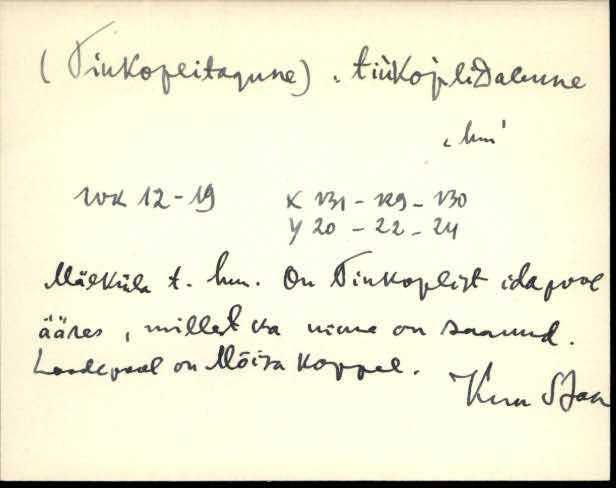 (Tiukopeitagune) , tiùkojpliDalune
, hm'
WK 12-19 X 131 - 129 - 130
Y 20 - 22 - 24
Mäeküla t. hm. On Tiukoplist ida pool
ääres, millest ka nime on saanud.
Loodepool on Mõisa koppel.